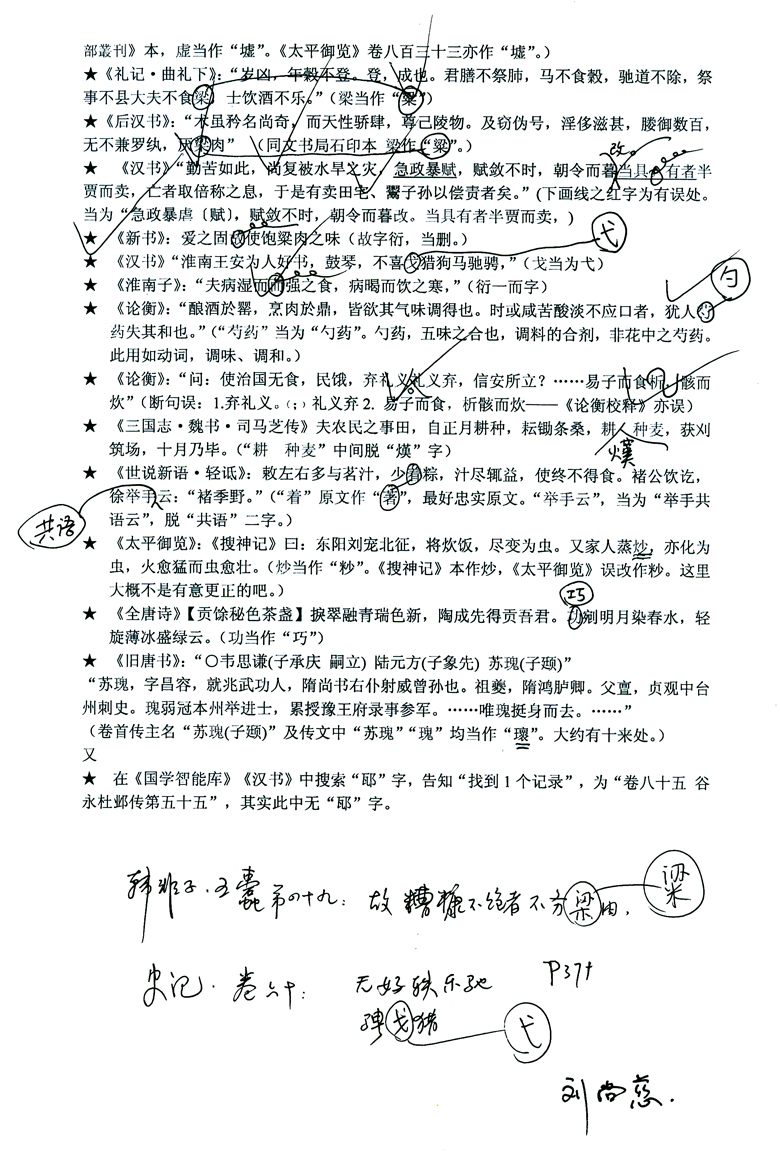 部叢刊》本，虚当作“墟”。《太平御览》卷八百三十三亦作“墟”。）
★《礼记·曲礼下》：“岁凶，年榖不登。登，成也。君膳不祭肺，马不食榖，驰道不除，祭
事不县大夫不食梁，士饮酒不乐。”（梁当作“粱”）
★《后汉书》：“术虽矜名尚奇，而天性骄肆，尊己陵物。及窃伪号，淫侈滋甚，媵御数百，
无不兼罗纨，厌梁肉”（同文书局石印本 梁作“粱”。）
★ 《汉书》“勤苦如此，尚复被水旱之灾，急政暴赋，赋敛不时，朝令而暮当具。有者半
改
贾而卖，亡者取倍称之息，于是有卖田宅、鬻子孙以偿责者矣。”（下画线之红字为有误处。
当为“急政暴虐〔赋〕，赋敛不时，朝令而暮改。当具有者半贾而卖，）
★ 《新书》：爱之固故使饱粱肉之味（故字衍，当删。）
弋
★ 《汉书》“淮南王安为人好书，鼓琴，不喜戈猎狗马驰骋，”（戈当为弋）
★ 《淮南子》：“夫病湿而而强之食，病暍而饮之寒，”（衍一而字）
勺
★ 《论衡》：“酿酒於罂，烹肉於鼎，皆欲其气味调得也。时或咸苦酸淡不应口者，犹人芍
药失其和也。”（“芍药”当为“勺药”。勺药，五味之合也，调料的合剂，非花中之芍药。
此用如动词，调味、调和。）
★ 《论衡》：“问：使治国无食，民饿，弃礼义礼义弃，信安所立？……易子而食析，骸而
炊”（断句误：1.弃礼义。（；）礼义弃2. 易子而食，析骸而炊——《论衡校释》亦误）
★ 《三国志·魏书·司马芝传》夫农民之事田，自正月耕种，耘锄条桑，耕 种麦，获刈
熯
筑场，十月乃毕。（“耕 种麦”中间脱“熯”字）
★ 《世说新语·轻诋》：敕左右多与茗汁，少着粽，汁尽辄益，使终不得食。褚公饮讫，
徐举手云：“褚季野。”（“着”原文作“著”，最好忠实原文。“举手云”，当为“举手共
共语
语云”，脱“共语”二字。）
★ 《太平御览》：《搜神记》曰：东阳刘宠北征，将炊饭，尽变为虫。又家人蒸炒，亦化为
虫，火愈猛而虫愈壮。（炒当作“麨”。《搜神记》本作炒，《太平御览》误改作麨。这里
大概不是有意更正的吧。）
巧
★ 《全唐诗》【贡馀秘色茶盏】捩翠融青瑞色新，陶成先得贡吾君。功剜明月染春水，轻
旋薄冰盛绿云。（功当作“巧”）
★ 《旧唐书》：“〇韦思谦(子承庆 嗣立) 陆元方(子象先) 苏瑰(子颋)”
“苏瑰，字昌容，就兆武功人，隋尚书右仆射威曾孙也。祖夔，隋鸿胪卿。父亶，贞观中台
州刺史。瑰弱冠本州举进士，累授豫王府录事参军。……唯瑰挺身而去。……”
（卷首传主名“苏瑰(子颋)”及传文中“苏瑰”“瑰”均当作“瓌”。大约有十来处。）
又
★ 在《国学智能库》《汉书》中搜索“耶”字，告知“找到1个记录”，为“卷八十五 谷
永杜邺传第五十五”，其实此中无“耶”字。
韩非子·五蠹第四十九：故糟糠不饱者不务梁肉， 粱
史记·卷六十： 无好轶乐驰 P37
骋戈猎 弋
刘尚慈.